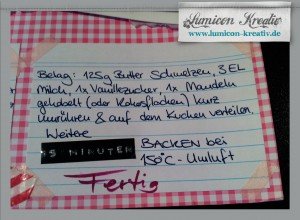 Lumicon Kreativ
www.lumicon-kreativ.de
Belag: 125g Butter Schmelzen, 3 EL
Milch, 1x Vanillezucker, 1x Mandeln
gehobelt (oder Kokosflocken) kurz
umrühren & auf dem Kuchen verteilen.
Weitere
15 MINUTEN BACKEN bei
150°C - Umluft
Fertig